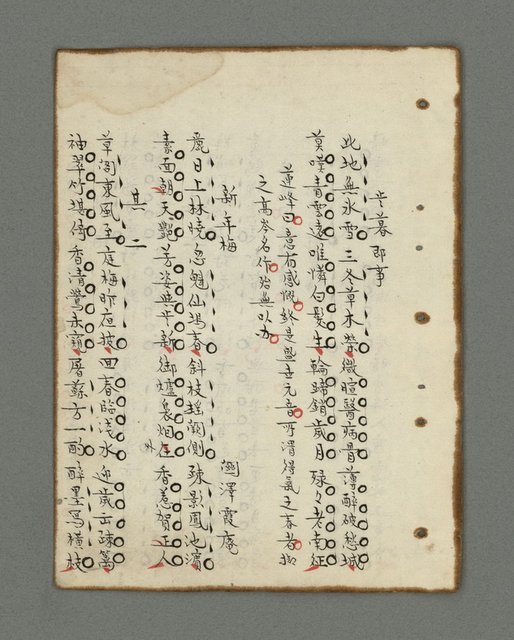 歲暮即事
此地無氷雪三冬草木榮微暄醫病骨薄醉破愁城
莫嘆青雲遠唯憐白髮生輪蹄銷歲月碌々老南征
蓮峰曰意有感慨終是盛世元音所謂得氣之春者
之高岑名作殆無以加
新年梅
關澤霞庵
麗日上林曉忽魁仙場春斜枝瑤閣側疎影鳳池濱
素面朝天艷芳姿與年新御爐裊烟在香裏賀正人
外
其二
草閣東風至庭梅昨夜披回春臨淺水迎歲出疎籬
袖翠竹堪倚香清鶯未窺屠蘇方一酌醉墨寫橫枝